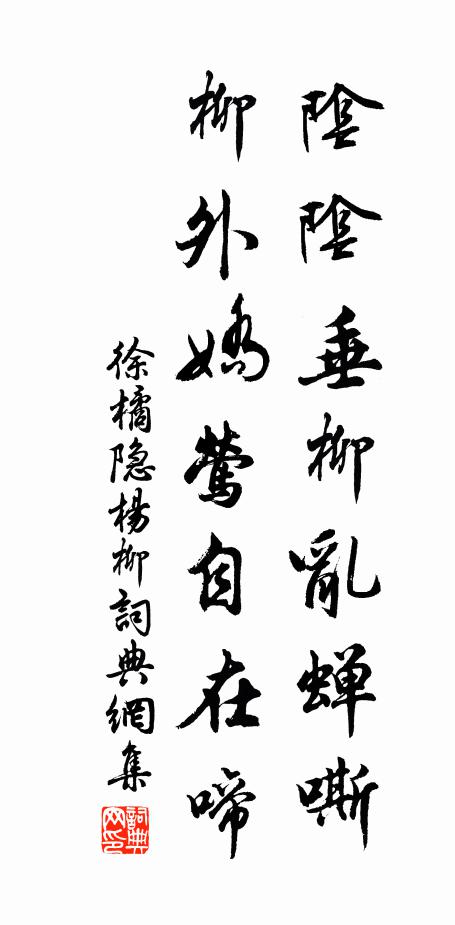 陰陰垂柳亂蟬嘶
柳外嬌鶯自在啼
徐橘隐楊柳詞典網集
詞典网印